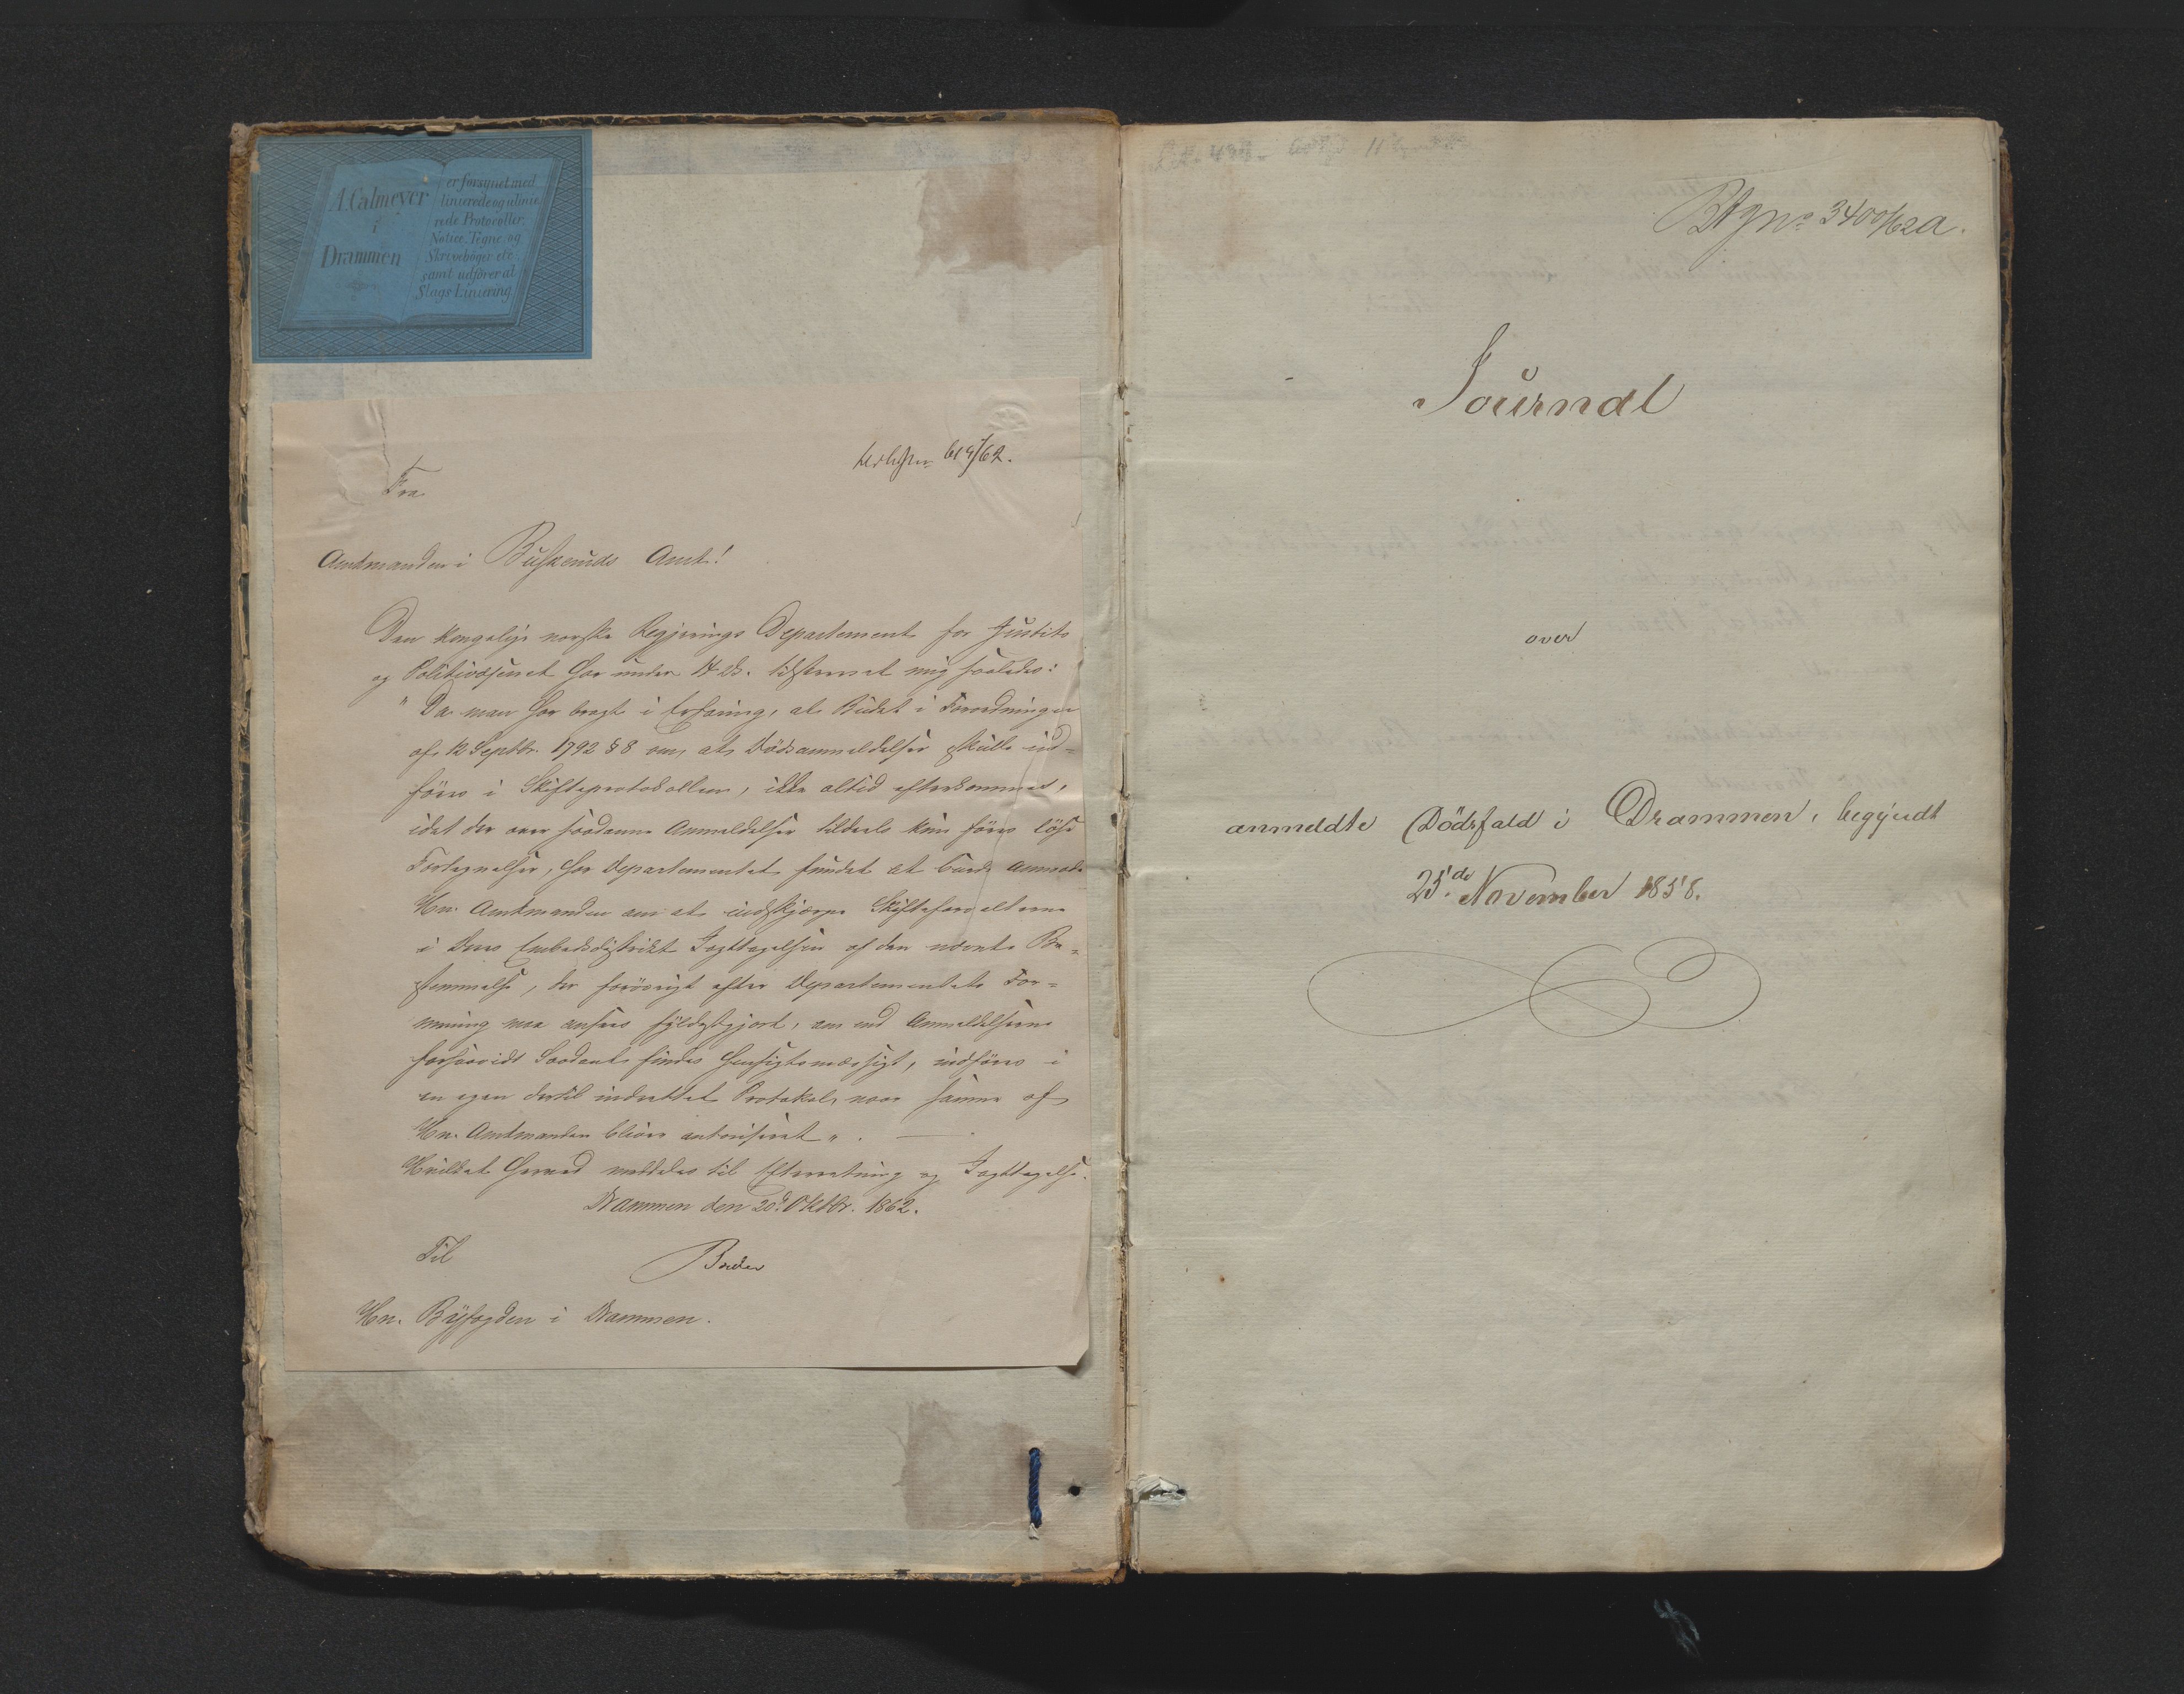 A. Calmeyer
i
Drammen
er forsynet med
linierede og ulinie
rede Protocoller,
Notice, Tegne og
Skrivebøger etc.
samt udfører al
Slags Liniering
619/62.
Fra
Amtmanden i Buskeruds Amt!
Den kongelige norske Regjerings Departement for Justits
og Politivæsenet har under 14 ds. tilskrevet mig saaledes:
"Da man har bragt i Erfaring, at Budet i Forordningen
af 12 Septbr. 1792 § 8 om, at Dödsanmeldelser skulle ind-
föres i Skifteprotokollen, ikke altid efterkommes,
idet der over saadanne Anmeldelser tildeels kun föres löse
Fortegnelser, har Departementet fundet at burde anmode
Hn. Amtmanden om at indskjærpe Skifteforvalterne
i Deres Embedsdistrikt Iagttagelsen af den nævnte Be-
stemmelse, der forövrigt efter Departementets For-
mening maa ansees fyldestgjort, om end Anmeldelserne
forsaavidt Saadant findes hensigtsmæssigt, indföres i
en egen dertil indrettet Protokol, naar samme af
Hn. Amtmanden bliver autoriseret".
Hvilket herved meddeles til Efterretning og Iagttagelse.
Drammen den 20de Oktbr. 1862.
Til
Hn. Byfogden i Drammen.
3400/62a.
Journal
over
anmeldte Dödsfald i Drammen, begyndt
25de November 1858.